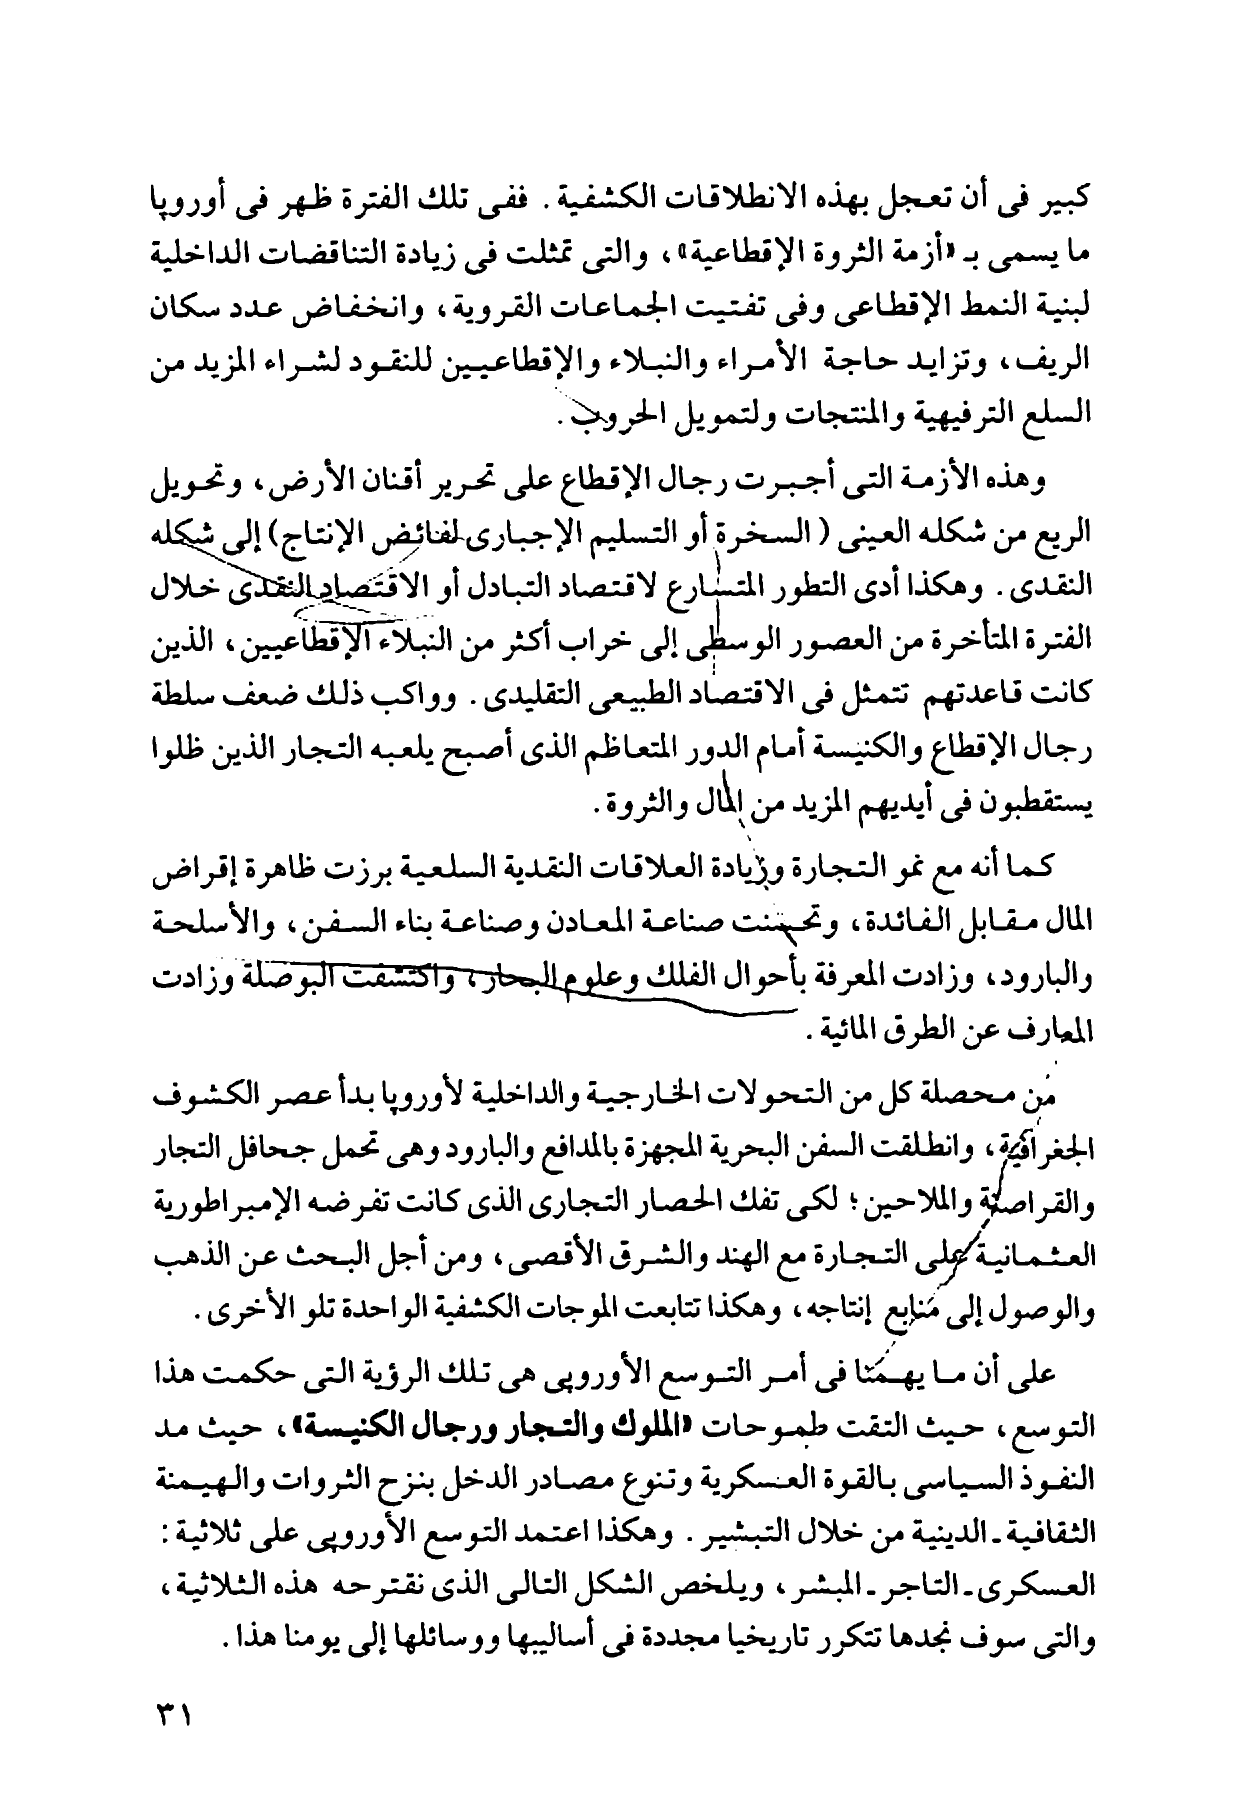 كبير فى أن تعجل بهذه الانطلاقات الكشفية. ففى تلك الفترة ظهر فى أوروپا
ما يسمى بـ «أزمة الثروة الإقطاعية»، والتى تمثلت فى زيادة التناقضات الداخلية
لبنية النمط الإقطاعى وفى تفتيت الجماعات القروية، وانخفاض عدد سكان
الريف، وتزايد حاجة الأمراء والنبلاء والإقطاعيين للنقود لشراء المزيد من
السلع الترفيهية والمنتجات ولتمويل الحروب.
وهذه الأزمة التى أجبرت رجال الإقطاع على تحرير أقنان الأرض، وتحويل
الريع من شكله العينى (السخرة أو التسليم الإجبارى لفائض الإنتاج) إلى شكله
النقدى. وهكذا أدى التطور المتسارع لاقتصاد التبادل أو الاقتصاد النقدى خلال
الفترة المتأخرة من العصور الوسطى إلى خراب أكثر من النبلاء الإقطاعيين، الذين
كانت قاعدتهم تتمثل فى الاقتصاد الطبيعى التقليدى. وواكب ذلك ضعف سلطة
رجال الإقطاع والكنيسة أمام الدور المتعاظم الذى أصبح يلعبه التجار الذين ظلوا
يستقطبون فى أيديهم المزيد من المال والثروة.
كما أنه مع نمو التجارة وزيادة العلاقات النقدية السلعية برزت ظاهرة إقراض
المال مقابل الفائدة، وتحسنت صناعة المعادن وصناعة بناء السفن، والأسلحة
والبارود، وزادت المعرفة بأحوال الفلك وعلوم البحار، واكتشفت البوصلة وزادت
المعارف عن الطرق المائية.
من محصلة كل من التحولات الخارجية والداخلية لأوروپا بدأ عصر الكشوف
الجغرافية، وانطلقت السفن البحرية المجهزة بالمدافع والبارود وهى تحمل جحافل التجار
والقراصنة والملاحين؛ لكى تفك الحصار التجارى الذى كانت تفرضه الإمبراطورية
العثمانية على التجارة مع الهند والشرق الأقصى، ومن أجل البحث عن الذهب
والوصول إلى منابع إنتاجه، وهكذا تتابعت الموجات الكشفية الواحدة تلو الأخرى.
على أن ما يهمنا فى أمر التوسع الأوروپى هى تلك الرؤية التى حكمت هذا
التوسع، حيث التقت طموحات «الملوك والتجار ورجال الكنيسة»، حيث مد
النفوذ السياسى بالقوة العسكرية وتنوع مصادر الدخل بنزح الثروات والهيمنة
الثقافية ـ الدينية من خلال التبشير. وهكذا اعتمد التوسع الأوروپى على ثلاثية:
العسكرى ـ التاجر ـ المبشر، ويلخص الشكل التالى الذى نقترحه هذه الثلاثية،
والتى سوف نجدها تتكرر تاريخيا مجددة فى أساليبها ووسائلها إلى يومنا هذا.
٣١